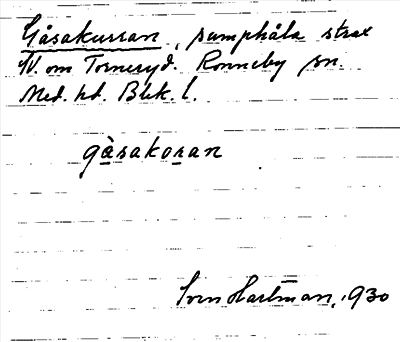 Gåsakurran, sumphåla strax
N. om Torneryd. Ronneby sn.
Med. hd. Blek. l.
gàsakoran
Sven Hartman, 1930